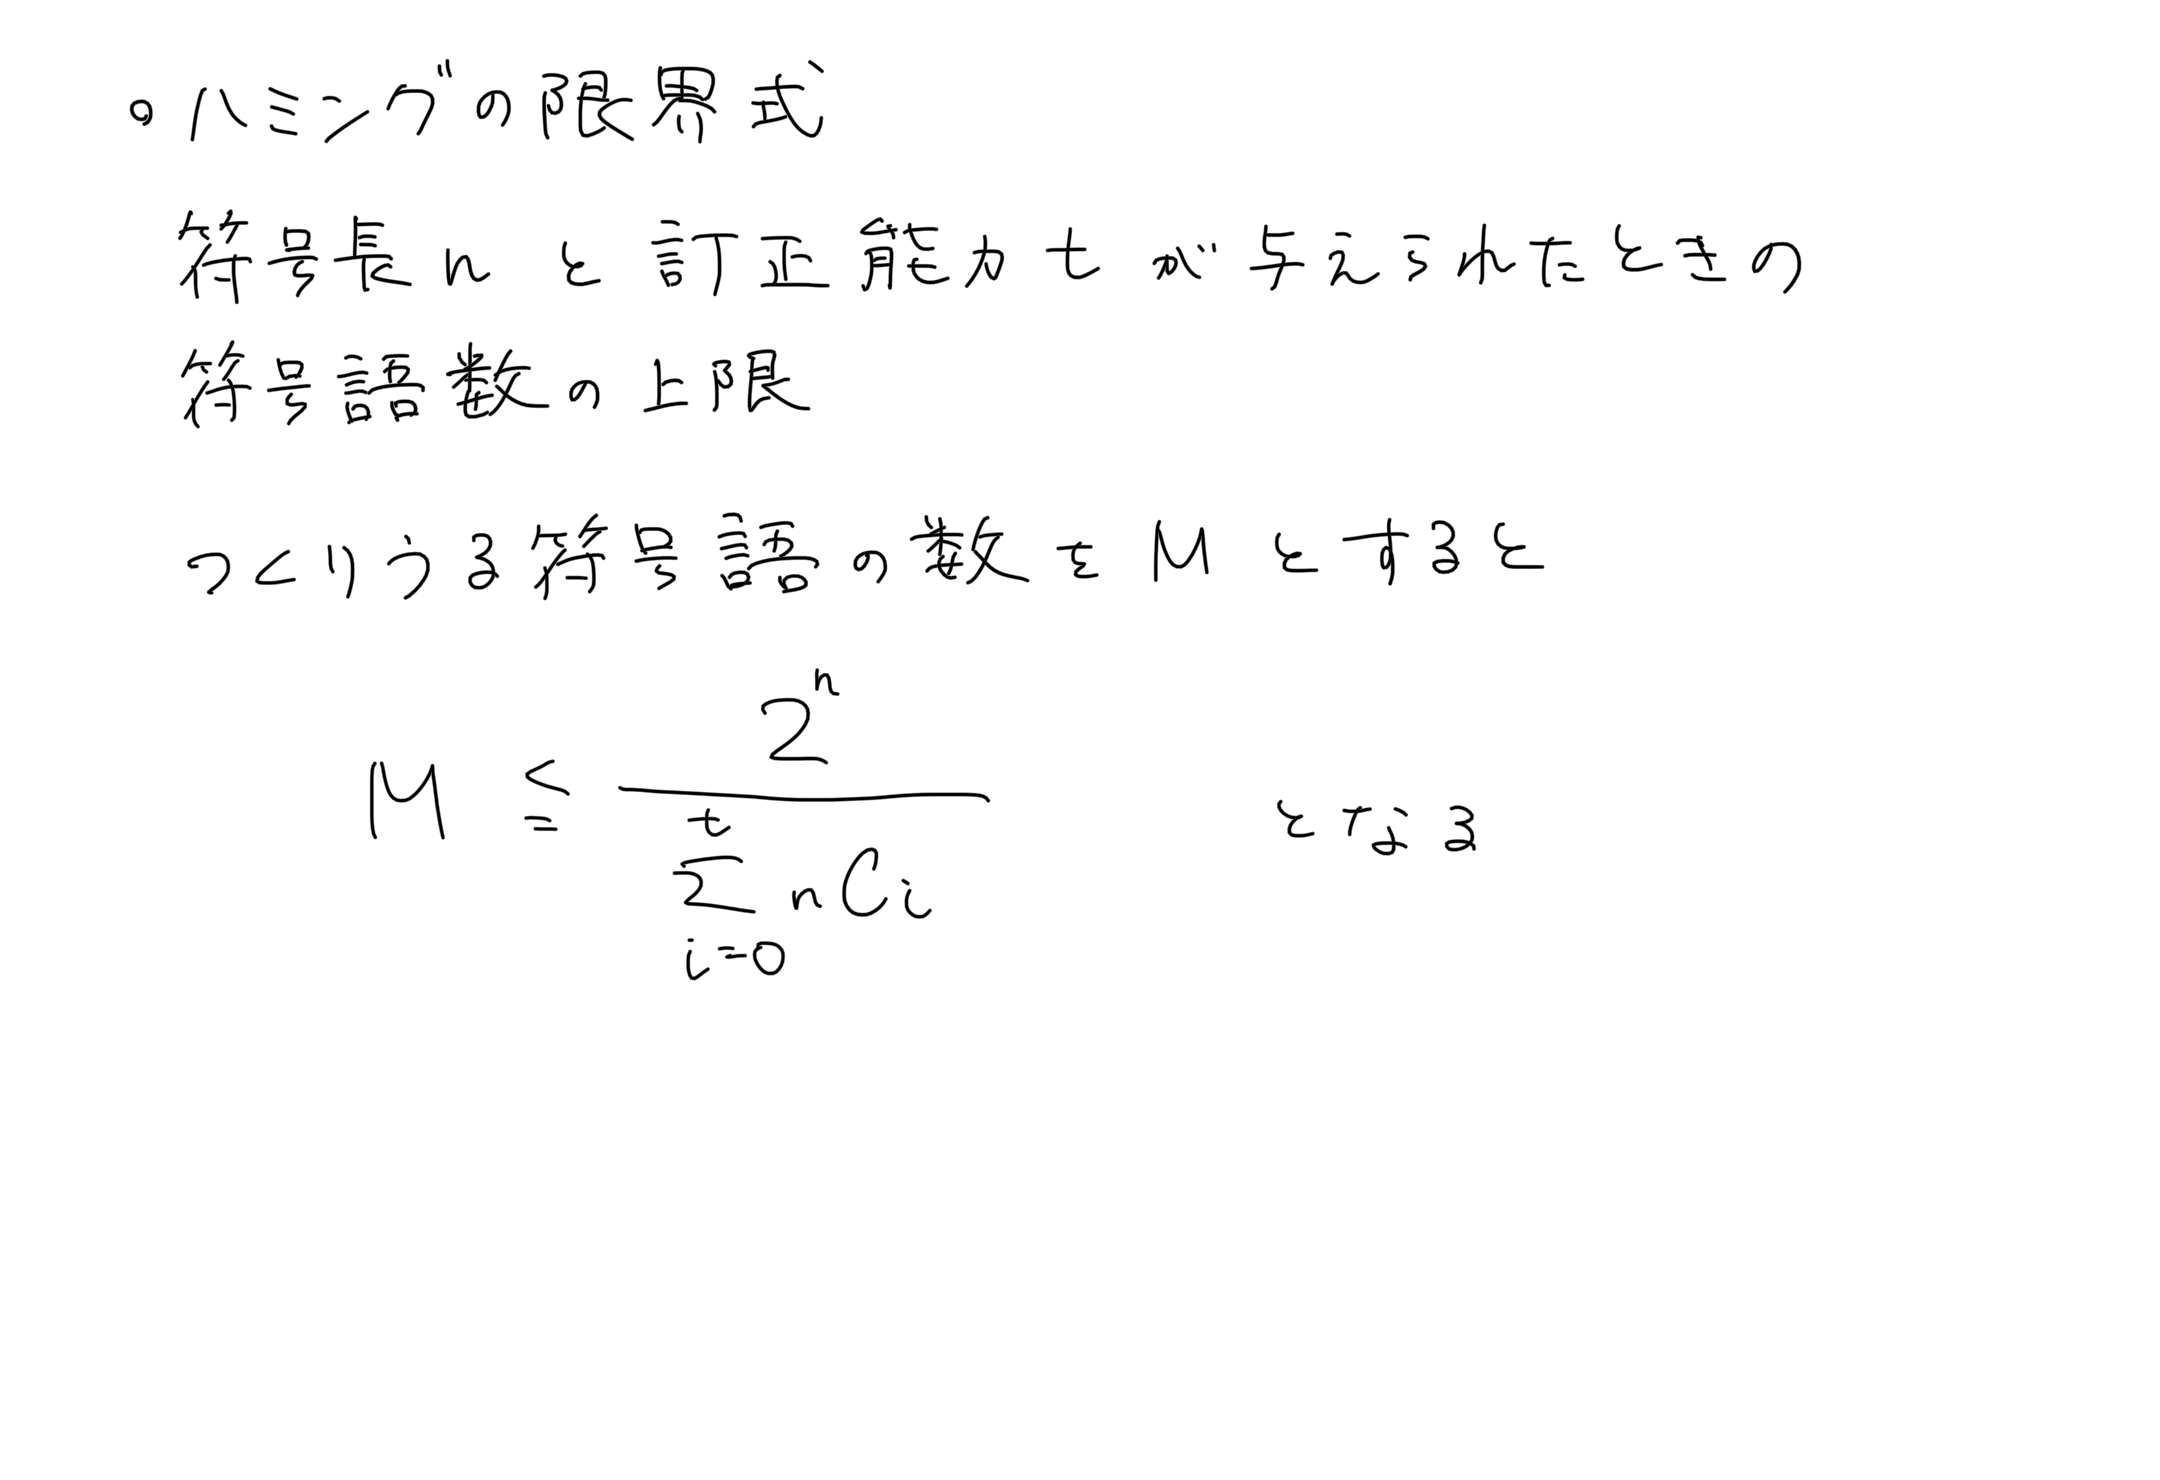 ○ ハミングの限界式
符号長 n と訂正能力 t が与えられたときの
符号語数の上限
つくりうる符号語の数を M とすると
M ≦ \frac{2^n}{\sum_{i=0}^{t} {}_nC_i} となる